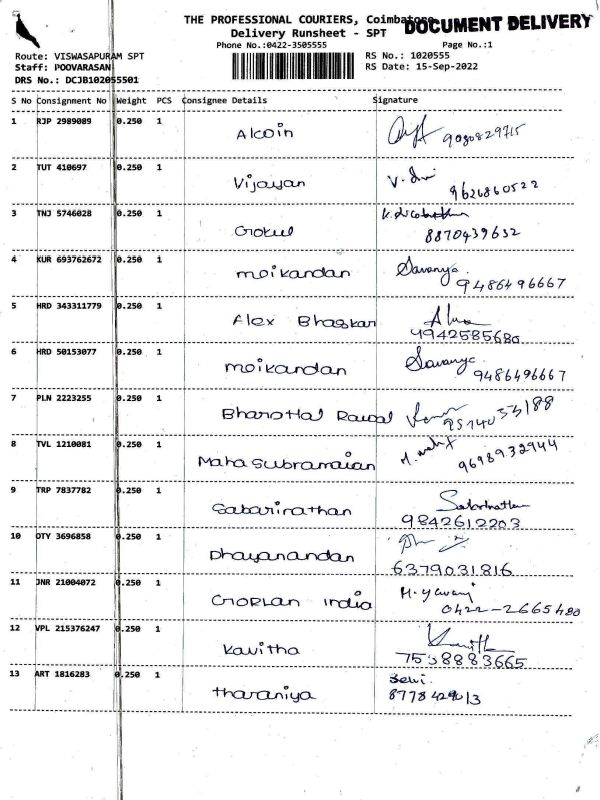 THE PROFESSIONAL COURIERS, Coimbatore
DOCUMENT DELIVERY
Delivery Runsheet - SPT
Phone No.:0422-3505555 Page No.:1
Route: VISWASAPURAM SPT RS No.: 1020555
Staff: POOVARASAN RS Date: 15-Sep-2022
DRS No.: DCJB102055501
S No Consignment No Weight PCS Consignee Details Signature
1 RJP 2989089 0.250 1 Alcoin 9080829715
2 TUT 410697 0.250 1 Vijayan 9626860522
3 TNJ 5746028 0.250 1 Gokul 8870439632
4 KUR 693762672 0.250 1 moikandan Saranya 9486496667
5 HRD 343311779 0.250 1 Alex Bhaskar
4942585680
6 HRD 50153077 0.250 1 moikandan Saranya 9486496667
7 PLN 2223255 0.250 1 Bharathal Rawal
8 TVL 1210081 0.250 1 Maha subramaian 9698932944
9 TRP 7837782 0.250 1 Sabarinathan
9842612203
10 OTY 3696858 0.250 1 Dhayanandan
6379031816
11 JNR 21004072 0.250 1 India
0422-2665480
12 VPL 215376247 0.250 1 Kavitha
7538883665
13 ART 1816283 0.250 1 Tharaniya